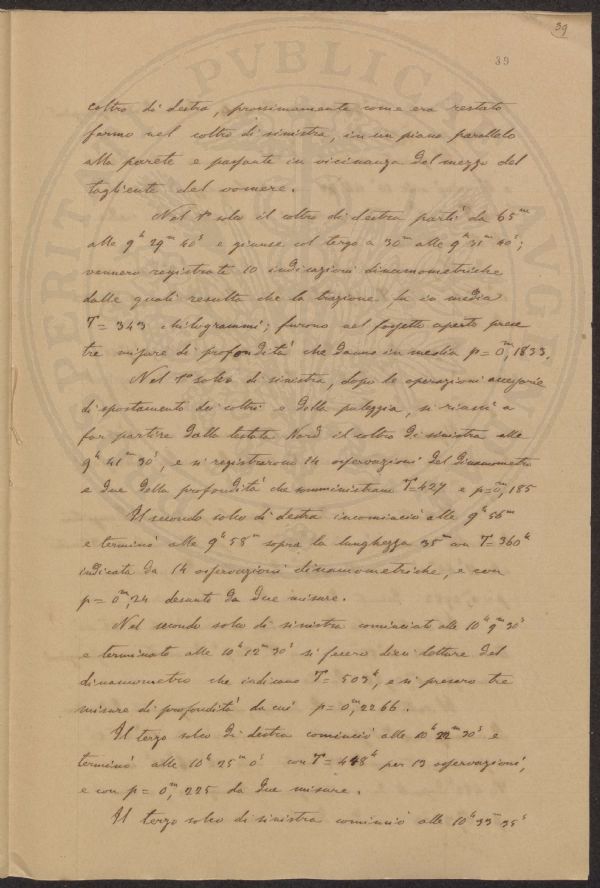 39
39
coltro di destra, prossimamente come era restato
fermo nel coltro di sinistra, in un piano parallelo
alla parete e passante in vicinanza del mezzo del
tagliente del vomere.
Nel 1° solco il coltro di destra partì da 65m
alle 9h 29m 40s e giunse col tergo a 30m alle 9h 31m 40s;
vennero registrate 10 indicazioni dinamometriche
dalle quali resulta che la trazione fu in media
T= 343 chilogrammi; furono nel fossetto aperto prese
tre misure di profondità che danno in media p= 0m,1833.
Nel 1° solco di sinistra, dopo le operazioni accessorie
di spostamento dei coltri e della puleggia, si riuscì a
far partire dalla testata Nord il coltro di sinistra alle
9h 41m 30s, e si registrarono 14 osservazioni del dinamometro
e due della profondità che somministrano T=427 e p=0m,185
Il secondo solco di destra incominciò alle 9h 56m
e terminò alle 9h 58m sopra la lunghezza 35m con T=360k
indicata da 14 osservazioni dinamometriche, e con
p= 0m,24 desunto da due misure.
Nel secondo solco di sinistra cominciato alle 10h 9m 30s
e terminato alle 10h 12m 30s si fecero dieci letture del
dinamometro che indicano T= 503k, e si presero tre
misure di profondità da cui p= 0m,2266.
Il terzo solco di destra cominciò alle 10h 22m 30s e
terminò alle 10h 25m 0s con T= 448k per 13 osservazioni,
e con p= 0m,225 da due misure.
Il terzo solco di sinistra cominciò alle 10h 33m 35s